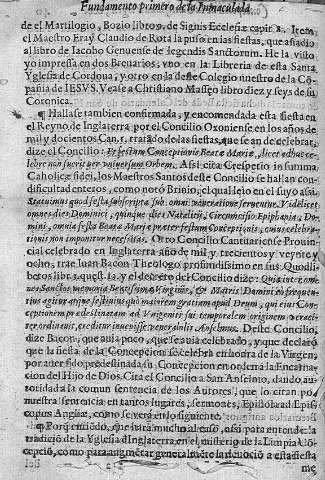 Fundamento primero de la Inmaculada
de el Martilogio, Bozio libro 9. de Signis Ecclesiæ capit. 8. Item,
el Maestro Fray Claudio de Rota la puso en las fiestas, que añadio
al libro de Iacobo Genuense de legendis Sanctorum. He la visto
yo impressa en dos Breuiarios; vno en la Libreria de esta Santa
Yglesia de Cordoua, y otro en la deste Colegio nuestro de la Cõ-
pañia de IESVS. Vease a Christiano Masseo libro diez y seys de su
Coronica.
¶ Hallase tambien confirmada, y encomendada esta fiesta en
el Reyno de Inglaterra por el Concilio Oxoniense en los años de
mil y docientos. Can. 8. tratãdo de las fiestas, que se an de celebrar,
dize el Concilio: Et festum Conceptionis Beatæ Mariæ, licet adhuc ce-
lebre non sit per vniuersum Orbem. Assi està Crespetio in summa
Catholicæ fidei, los Maestros Santos deste Concilio se hallan con
dificultad enteros, como notò Brinio, el qual lejo en el suyo assi.
Statuimus quod festa subscripta sub omni veneratione seruentur. Videlicet
omnes dies Dominici, quinque dies Natalitij, Circumcisio, Epiphania Do-
mini, omnia festa Beatæ Mariæ præter festum Conceptionis, cuius celebra-
tioni non imponitur necessitas. Otro Concilio Cantuariense Prouin-
cial celebrado en Inglaterra año de mil y trecientos y veynte y
ocho, trae Iuan Bacon Theologo profundissimo en sus Quodli-
betos lib. 3. quæst. 13. y el decreto del Concilio dize: Quia inter om-
nes Sanctos memoria Beatissimæ Virginis, & Matris Domini eò frequen-
tius agitur atque festiuius quò maiorem gratiam apud Deum, qui eius Con-
ceptionem prædestinatam ad Vnigeniti sui temporalem originem
ordinauit, creditur inuenisse venerabilis Anselmus. Deste Concilio,
dize Bacon, que auia poco, que se auia celebrado, y que declarò
que la fiesta de la Concepcion se celebra en honra de la Virgen,
por auer sido predestinada su Concepcion en orden a la Encarna-
cion del Hijo de Dios. Cita el Concilio a San Anselmo, dando au-
toridad a la comun sentencia de los Autores, que lo citan por
nuestra sentencia en tantos lugares, sermones, Epistola ad Epis-
copos Angliæ, como se verà en lo siguiente.
¶ Por q̃ entiẽdo, que harà mucho al caso, assi para entender la
tradiciõ de la Yglesia d'Inglaterra en el misterio de la Limpia Cõ-
cepciõ, como para augmẽtar
me